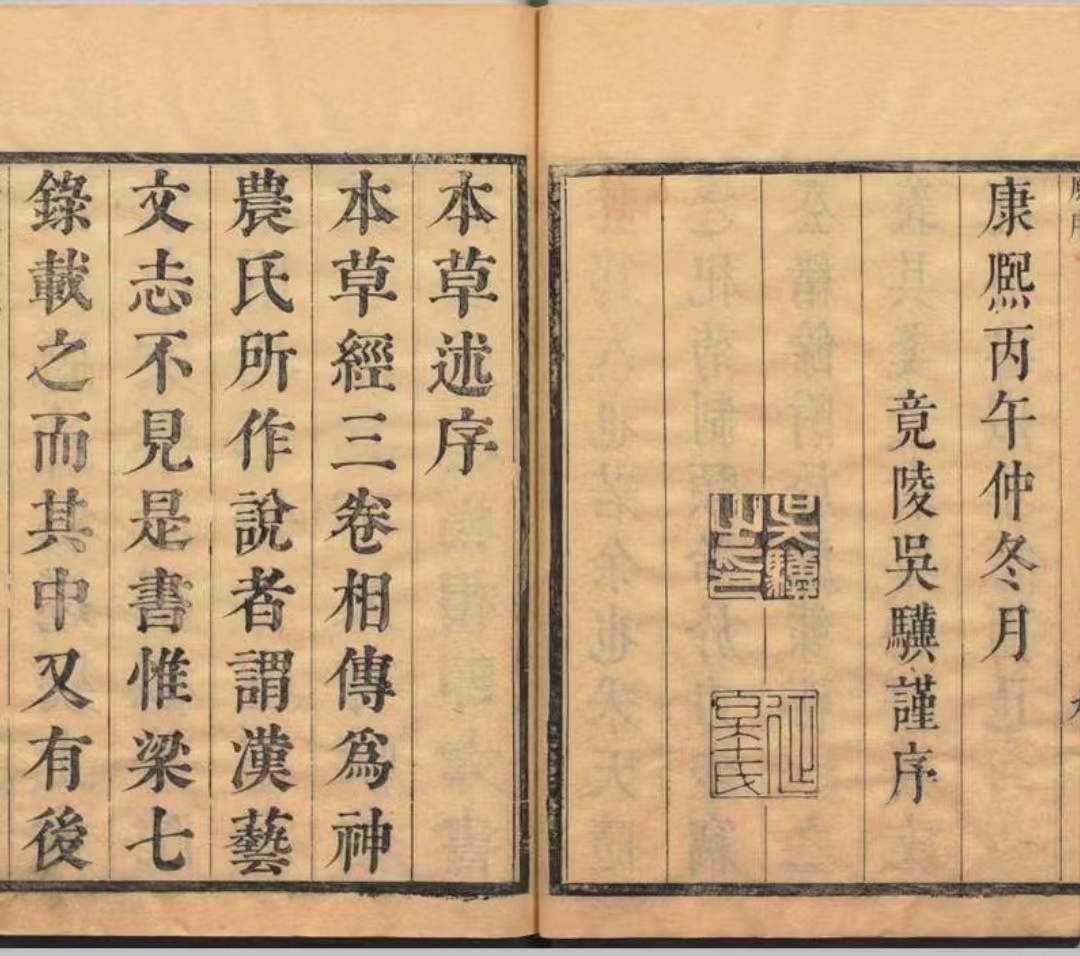 康熙丙午仲冬月
竟陵吳驥謹序
吳驥之印
本草述序
本草經三卷相傳爲神
農氏所作說者謂漢藝
文志不見是書惟梁七
錄載之而其中又有後